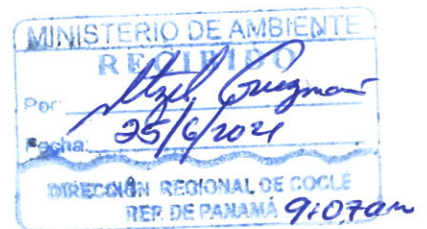 MINISTERIO DE AMBIENTE
RECIBIDO
Por: Itzel Guzmán
Fecha: 25/6/2021
DIRECCIÓN REGIONAL DE COCLÉ
REP. DE PANAMÁ 9:07am